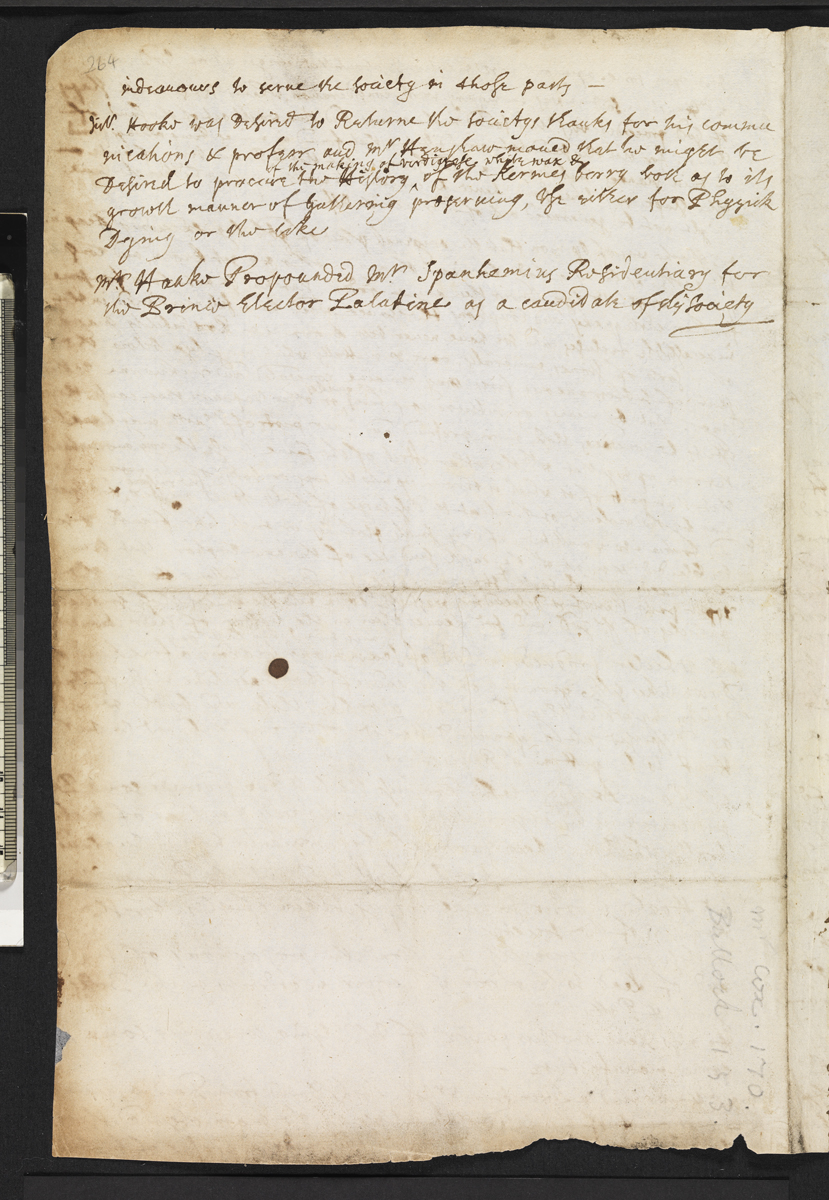 264
indeauours to serue the society in those parts —
Mr. Hooke was Desired to Returne the societys thanks for his commu
nications & profer and Mr Henshaw moued that he might be
of the making of verdigrese white wax &
Desired to procure the History ^ of the Kermes berry both as to its
growth manner of gathering preserving, Use either for Physick
Dying or the like
Mr Hauke Propounded Mr Spanhemius Residentiary for
the Prince Elector Palatine as a candidate of the Society
Mr Cox. 170.
Ballord 183